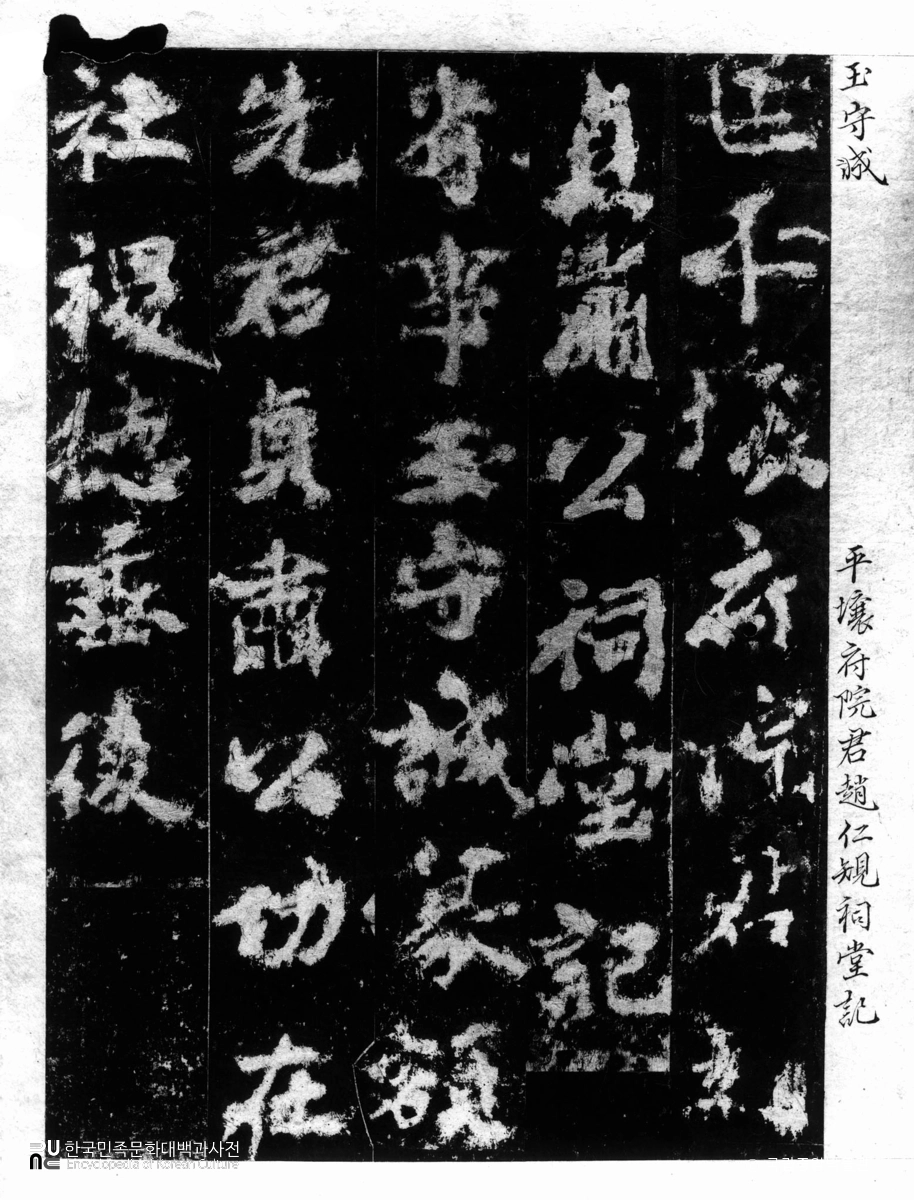 玉守誠
平壤府院君趙仁規祠堂記
平壤府院君趙
貞肅公祠堂記
省事玉守誠篆額
先君貞肅公功在
社稷德垂後
한국민족문화대백과사전
Encyclopedia of Korean Culture